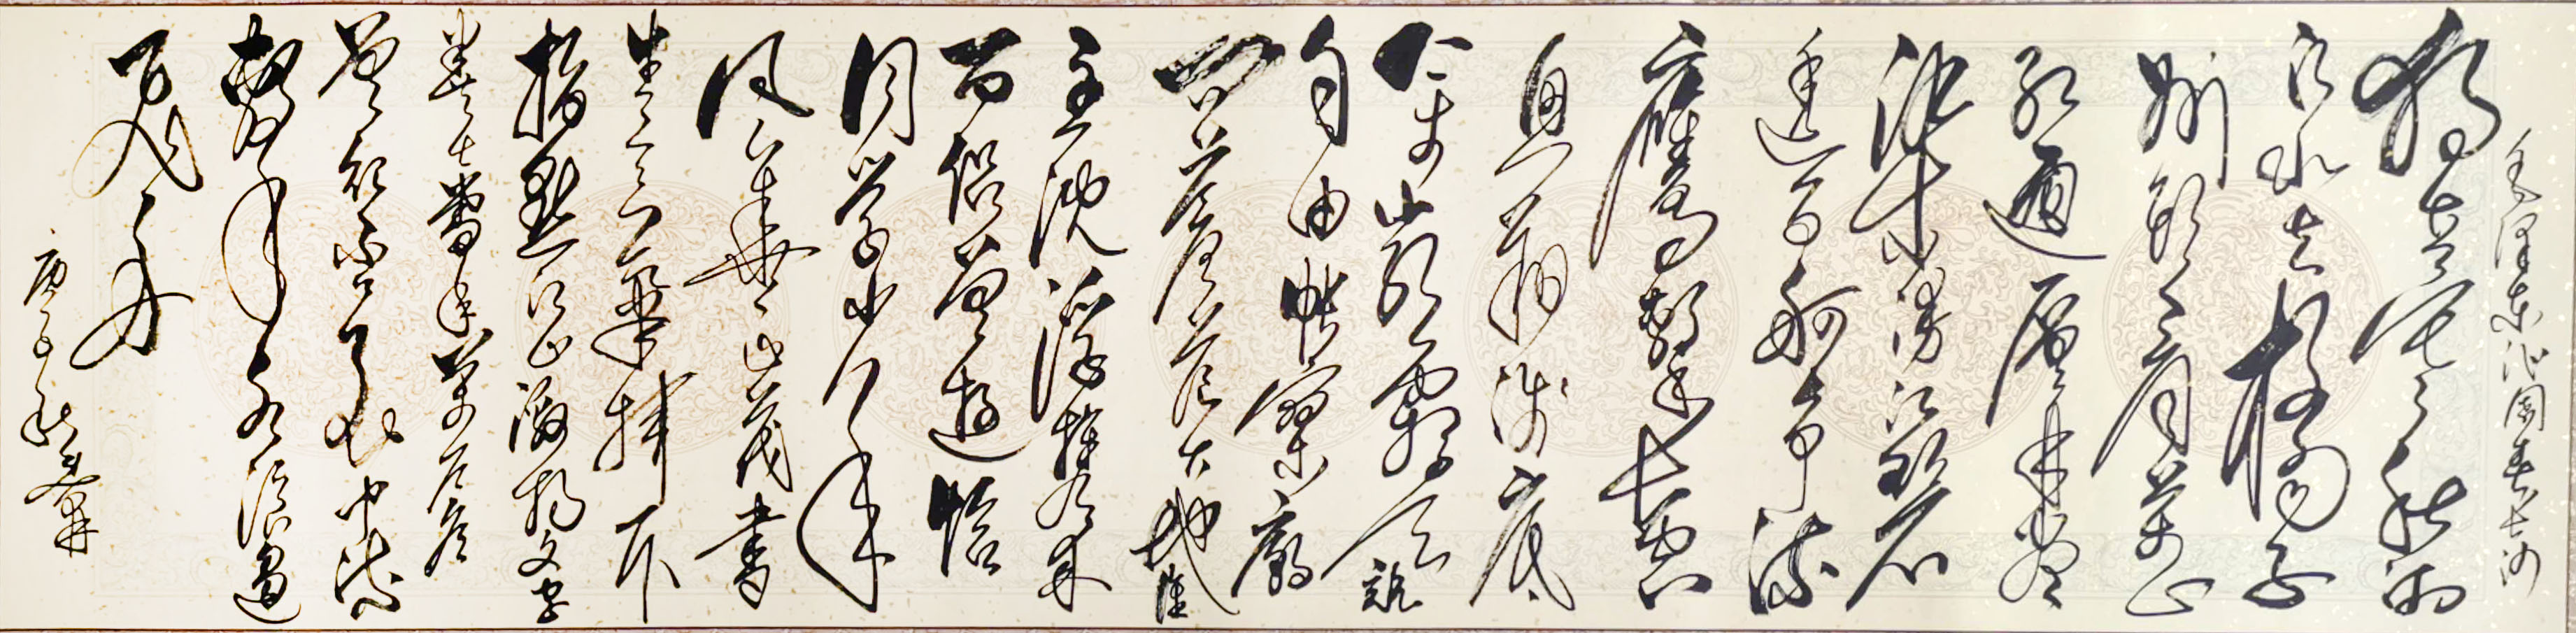 毛泽东沁园春长沙
独立寒秋湘
江北去橘子
洲头看万山
红遍层林尽
染漫江碧
透百舸争流
鹰击长空
鱼翔浅底
万类霜天竞
自由怅寥廓
问苍茫大地谁
主沉浮携来
百侣曾游恰
同学少年
风华正茂书
生意气挥斥
指点江山激扬文字
粪土当年万户侯
曾记否到中流
击水浪遏
飞舟
庚子秋